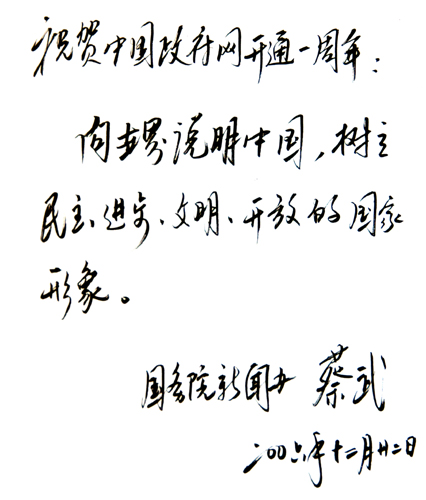 祝贺中国政府网开通一周年:
向世界说明中国,树立
民主、进步、文明、开放的国家
形象。
国务院新闻办 蔡武
二00六年十二月廿二日